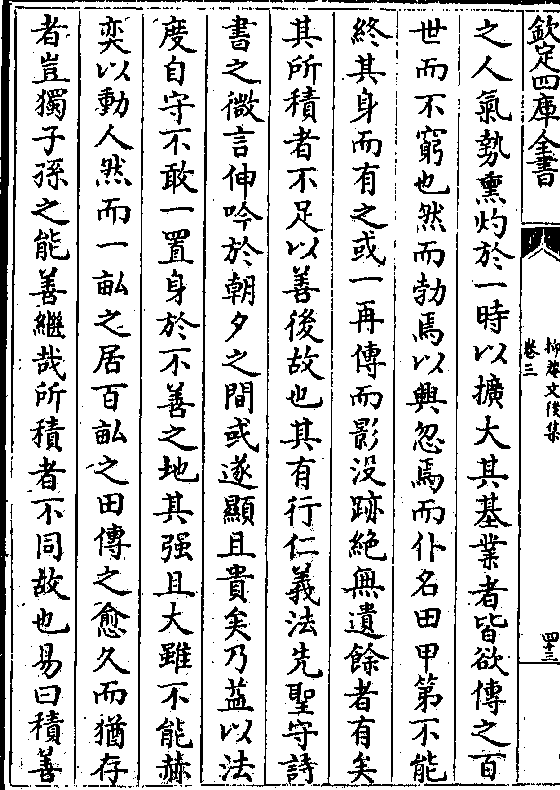 欽定四庫全書
抑菴文後集
卷三
四十三
之人氣勢熏灼於一時以擴大其基業者皆欲傳之百
世而不窮也然而勃焉以興忽焉而仆名田甲第不能
終其身而有之或一再傳而影没跡絶無遺餘者有矣
其所積者不足以善後故也其有行仁義法先聖守詩
書之微言伸吟於朝夕之間或遂顯且貴矣乃益以法
度自守不敢一置身於不善之地其强且大雖不能赫
奕以動人然而一畝之居百畝之田傳之愈久而猶存
者豈獨子孫之能善繼哉所積者不同故也易曰積善